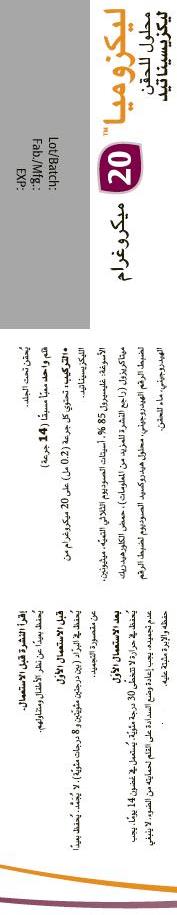 ليكزوميا™ 20 ميكروغرام
محلول للحقن
ليكزيسيناتيد
Lot/Batch:
Fab./Mfg.:
EXP:
يُحقن تحت الجلد.
قلم واحد معبأ مسبقًا (14 جرعة)
•التركيب: تحتوي كل جرعة (0.2 مل) على 20 ميكروغرام من
الليكزيسيناتيد.
الأسوغة: غليسيرول 85 %، أسيتات الصوديوم الثلاثي التميّه، ميثيونين،
ميتاكريزول (راجع النشرة للمزيد من المعلومات)، حمض الكلورهيدريك
لضبط الرقم الهيدروجيني، محلول هيدروكسيد الصوديوم لضبط الرقم
الهيدروجيني، ماء للحقن.
إقرأ النشرة قبل الاستعمال.
يُحفظ بعيدًا عن نظر الأطفال ومتناولهم.
قبل الاستعمال الأوّل
يُحفظ في البرّاد (بين درجتين مئويّتين و 8 درجات مئويّة). لا يُجمّد. يُحفظ بعيدًا
عن مقصورة التجميد.
بعد الاستعمال الأوّل
يُحفظ في حرارة لا تتخطّى 30 درجة مئويّة. يُستعمل في غضون 14 يومًا. يجب
عدم تجميده. يجب إعادة وضع السدادة على القلم لحمايته من الضوء. لا ينبغي
حفظه والإبرة مثبّتة عليه.